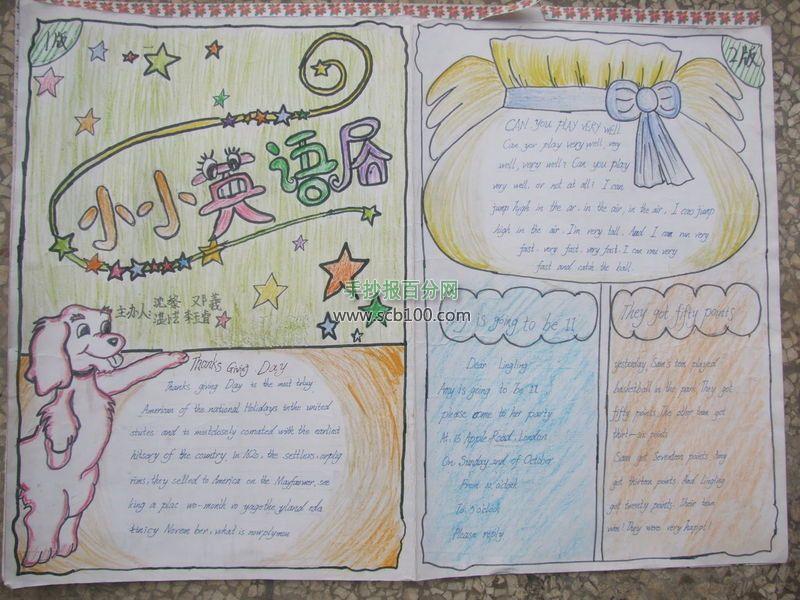 1版
小小英语屋
主办人:
Thanks Giving Day
Thanks giving Day is the most truly
American of the national Holidays inthe united
states and is mutclosely connated with the earliest
hitsory of the country. in the settlers,
rims, they selled to America on the Mayflawer, see
king a plac wo-month vo yagethe yland
Novem ber, what is nowplymou
2版
CAN YOU PLAY VERY WELL
Can you play very well, very
well, very well? Can you play
very well. or not at all! I can
jump high in the ar. in the air, in the air, I can jump
high in the air. I'm very tall. And I can run very
fast. very fast. very fast. I can run very
fast and catch the ball.
手抄报百分网
www.scb100.com
is going to be 11
Dear Lingling
Amy is going to be 11,
please come to her party
At 15 Apple Road, London
On Sunday 2nd of October
From o'clock
To 5 o'clock
Please reply
They got fifty points
yesterday Sam's tem played
basketball in the park. They got
fifty points. The other team got
thirt-six points
Sam got Seventeen points
got thirteen points. And Lingling
got twenty points. Their team
won! They were very happy!